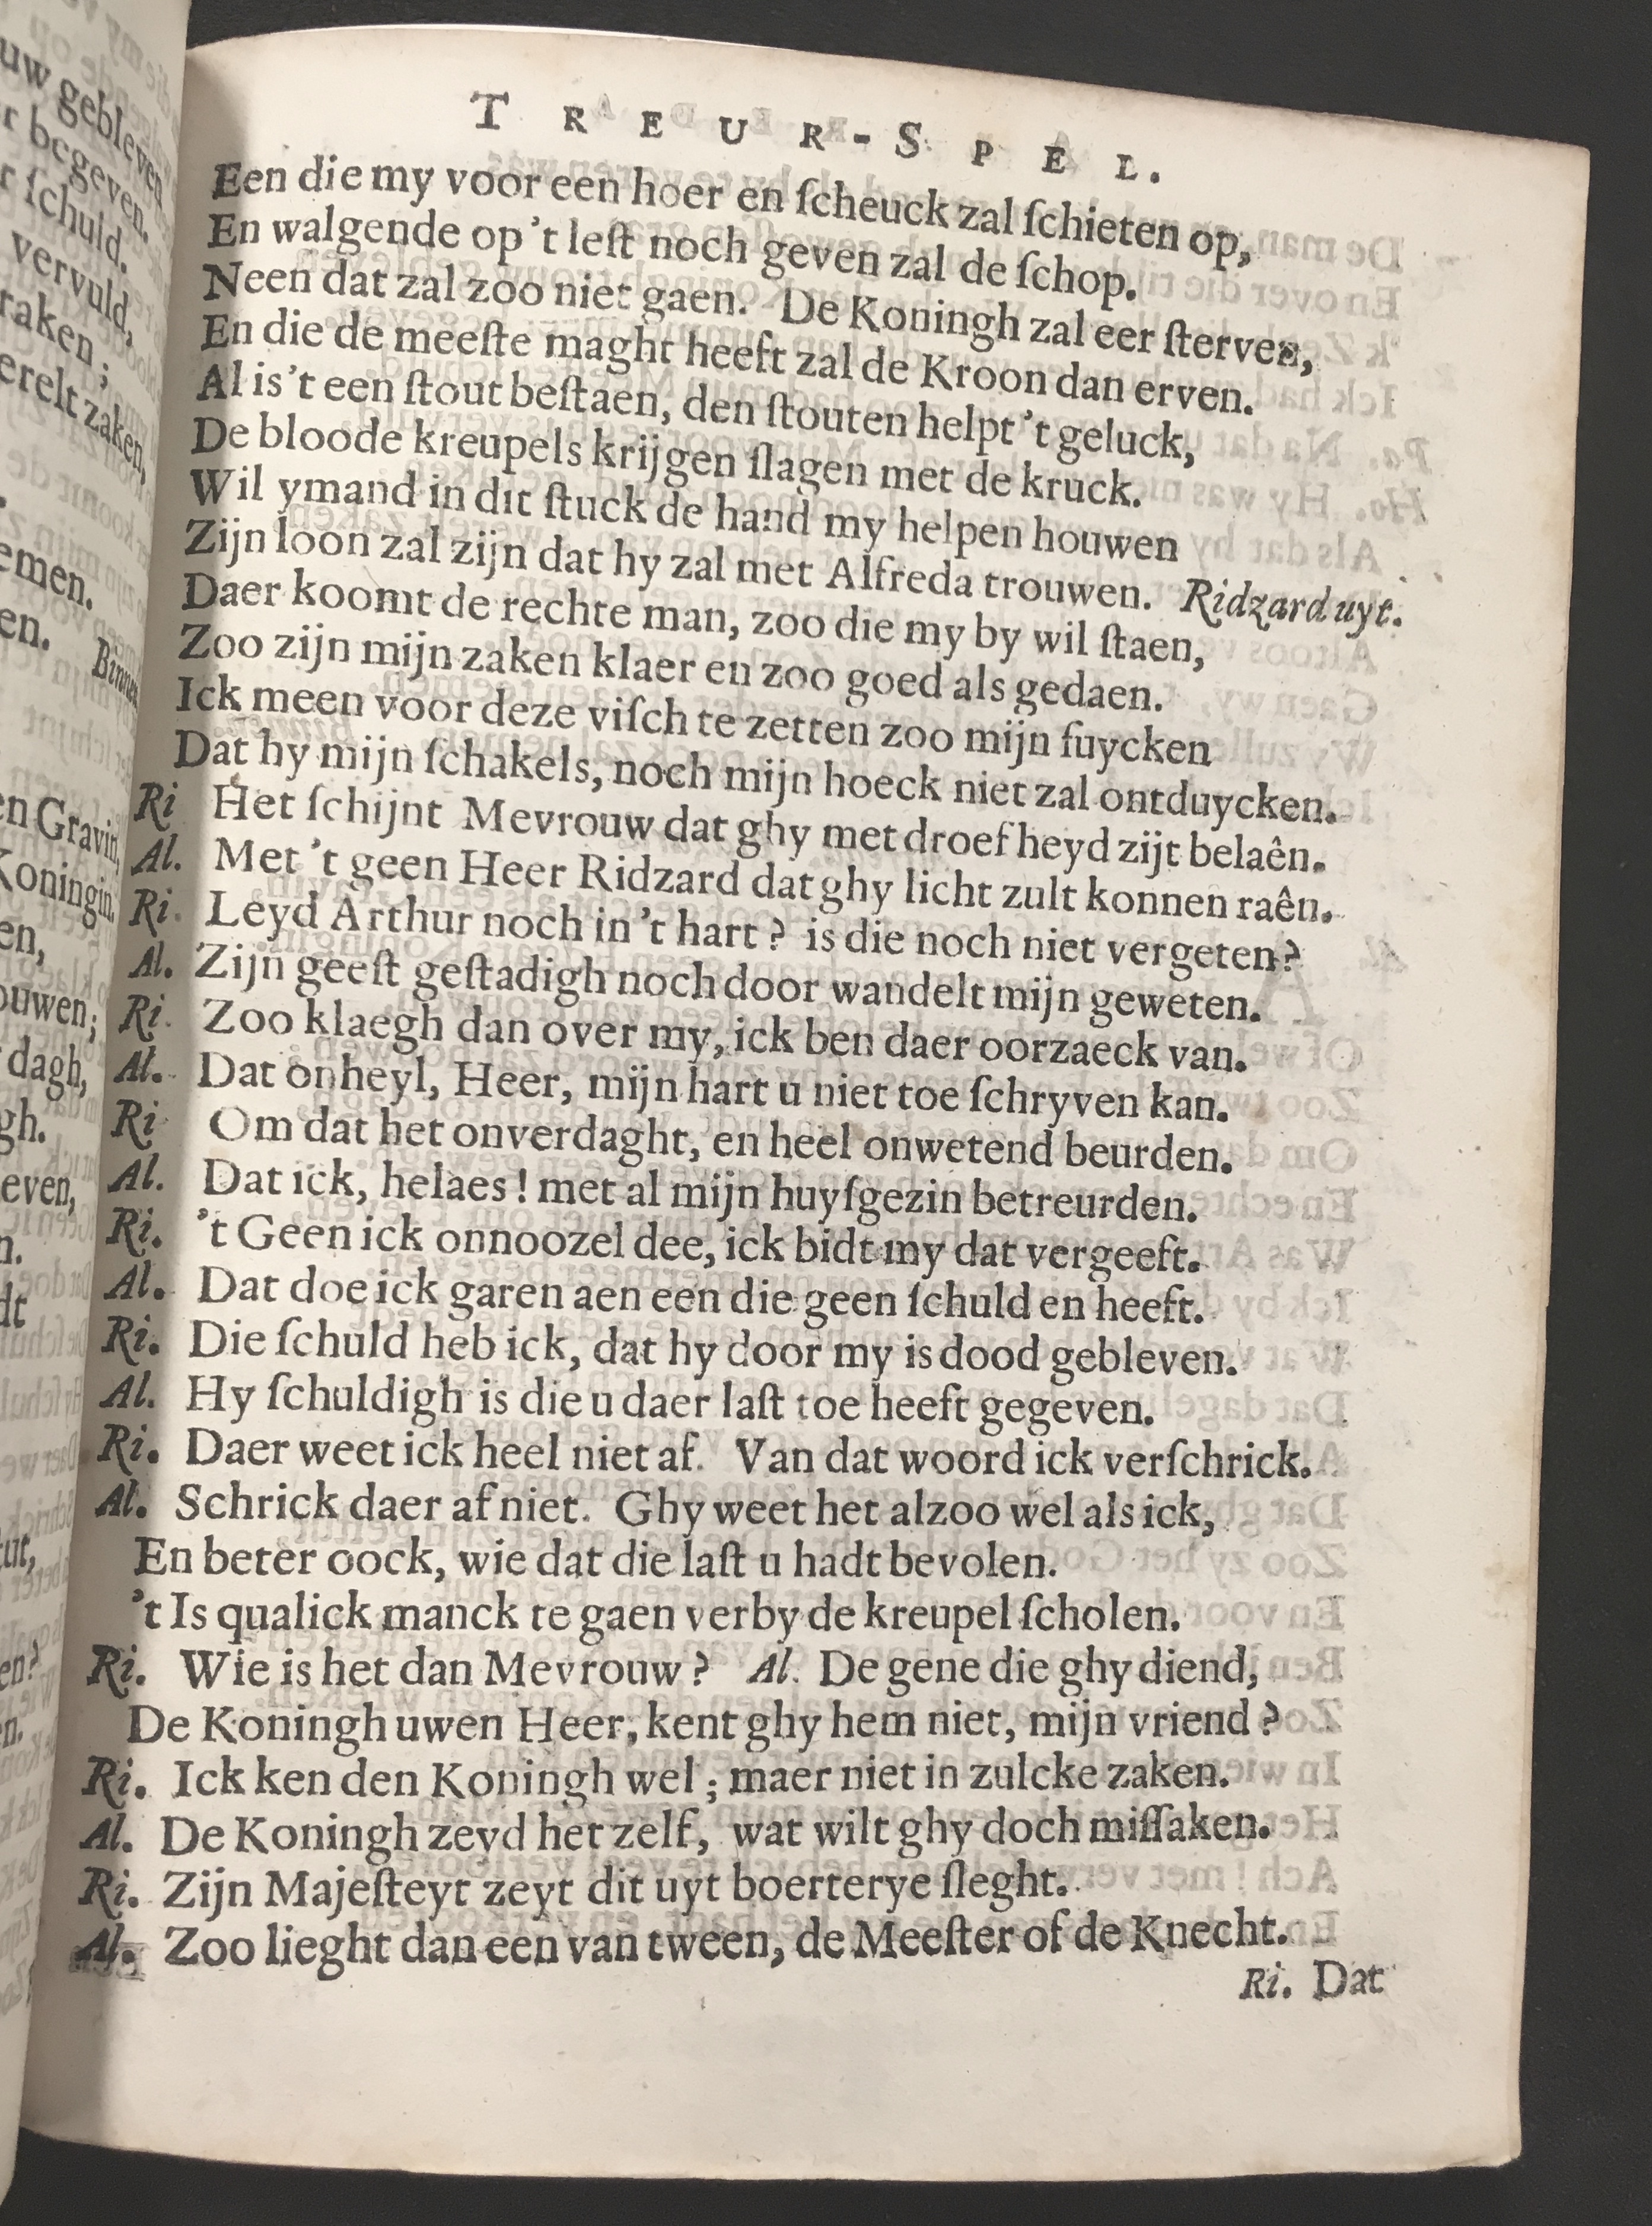 TREUR-SPEL.
Een die my voor een hoer en ſcheuck zal ſchieten op,
En walgende op 't leſt noch geven zal de ſchop.
Neen dat zal zoo niet gaen. De Koningh zal eer ſterven,
En die de meeſte maght heeft zal de Kroon dan erven.
Al is 't een ſtout beſtaen, den ſtouten helpt 't geluck,
De bloode kreupels krijgen ſlagen met de kruck.
Wil ymand in dit ſtuck de hand my helpen houwen
Zijn loon zal zijn dat hy zal met Alfreda trouwen. Ridzard uyt.
Daer koomt de rechte man, zoo die my by wil ſtaen,
Zoo zijn mijn zaken klaer en zoo goed als gedaen.
Ick meen voor deze viſch te zetten zoo mijn fuycken
Dat hy mijn ſchakels, noch mijn hoeck niet zal ontduycken.
Ri Het ſchijnt Mevrouw dat ghy met droef heyd zijt belaên.
Al. Met 't geen Heer Ridzard dat ghy licht zult konnen raên.
Ri. Leyd Arthur noch in 't hart? is die noch niet vergeten?
Al. Zijn geeſt geſtadigh noch door wandelt mijn geweten.
Ri. Zoo klaegh dan over my, ick ben daer oorzaeck van.
Al. Dat onheyl, Heer, mijn hart u niet toe ſchryven kan.
Ri Om dat het onverdaght, en heel onwetend beurden.
Al. Dat ick, helaes! met al mijn huyſgezin betreurden.
Ri. 't Geen ick onnoozel dee, ick bidt my dat vergeeft.
Al. Dat doe ick garen aen een die geen ſchuld en heeft.
Ri. Die ſchuld heb ick, dat hy door my is dood gebleven.
Al. Hy ſchuldigh is die u daer laſt toe heeft gegeven.
Ri. Daer weet ick heel niet af. Van dat woord ick verſchrick.
Al. Schrick daer af niet. Ghy weet het alzoo wel als ick,
En beter oock, wie dat die laſt u hadt bevolen.
't Is qualick manck te gaen verby de kreupel ſcholen.
Ri. Wie is het dan Mevrouw? Al. De gene die ghy diend,
De Koningh uwen Heer, kent ghy hem niet, mijn vriend?
Ri. Ick ken den Koningh wel; maer niet in zulcke zaken.
Al. De Koningh zeyd het zelf, wat wilt ghy doch miſſaken.
Ri. Zijn Majeſteyt zeyt dit uyt boerterye ſleght.
Al. Zoo lieght dan een van tween, de Meeſter of de Knecht.
Ri. Dat